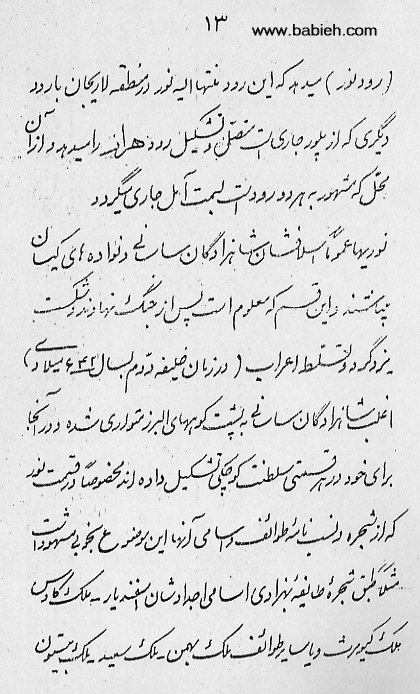 ۱۳
www.babieh.com
( رود نور ) میدهد که این رود منتها الیه نور در منطقه لاریجان با رود
دیگری که از پلور جاری است متصل و تشکیل رود هراز را میدهد و از آن
محل که مشهور به هر دو رود است بسمت آمل جاری میگردد
نوریها عموماً اسلافشان بشاهزادگان ساسانی و نواده های کیان
میپیوستند و این قسم که معلوم است پس از جنگ نهاوند و شکست
یزدگرد و تسلط اعراب ( در زمان خلیفه دوم بسال ۶۴۲ میلادی )
اغلب شاهزادگان ساسانی به پشت کوههای البرز متواری شده و در آنجا
برای خود در هر قسمتی سلطنت کوچکی تشکیل داده اند مخصوصاً در قسمت نور
که از شجره و نسب نامهٔ طوائف و اسامی آنها این موضوع بخوبی مشهود است
مثلاً طبق شجرهٔ طایفهٔ بهزادی اسامی اجدادشان اسفندیار - ملک کاوس
ملک کیومرث و یا سایر طوائف ملک بهمن - ملک سعید - ملک بیستون